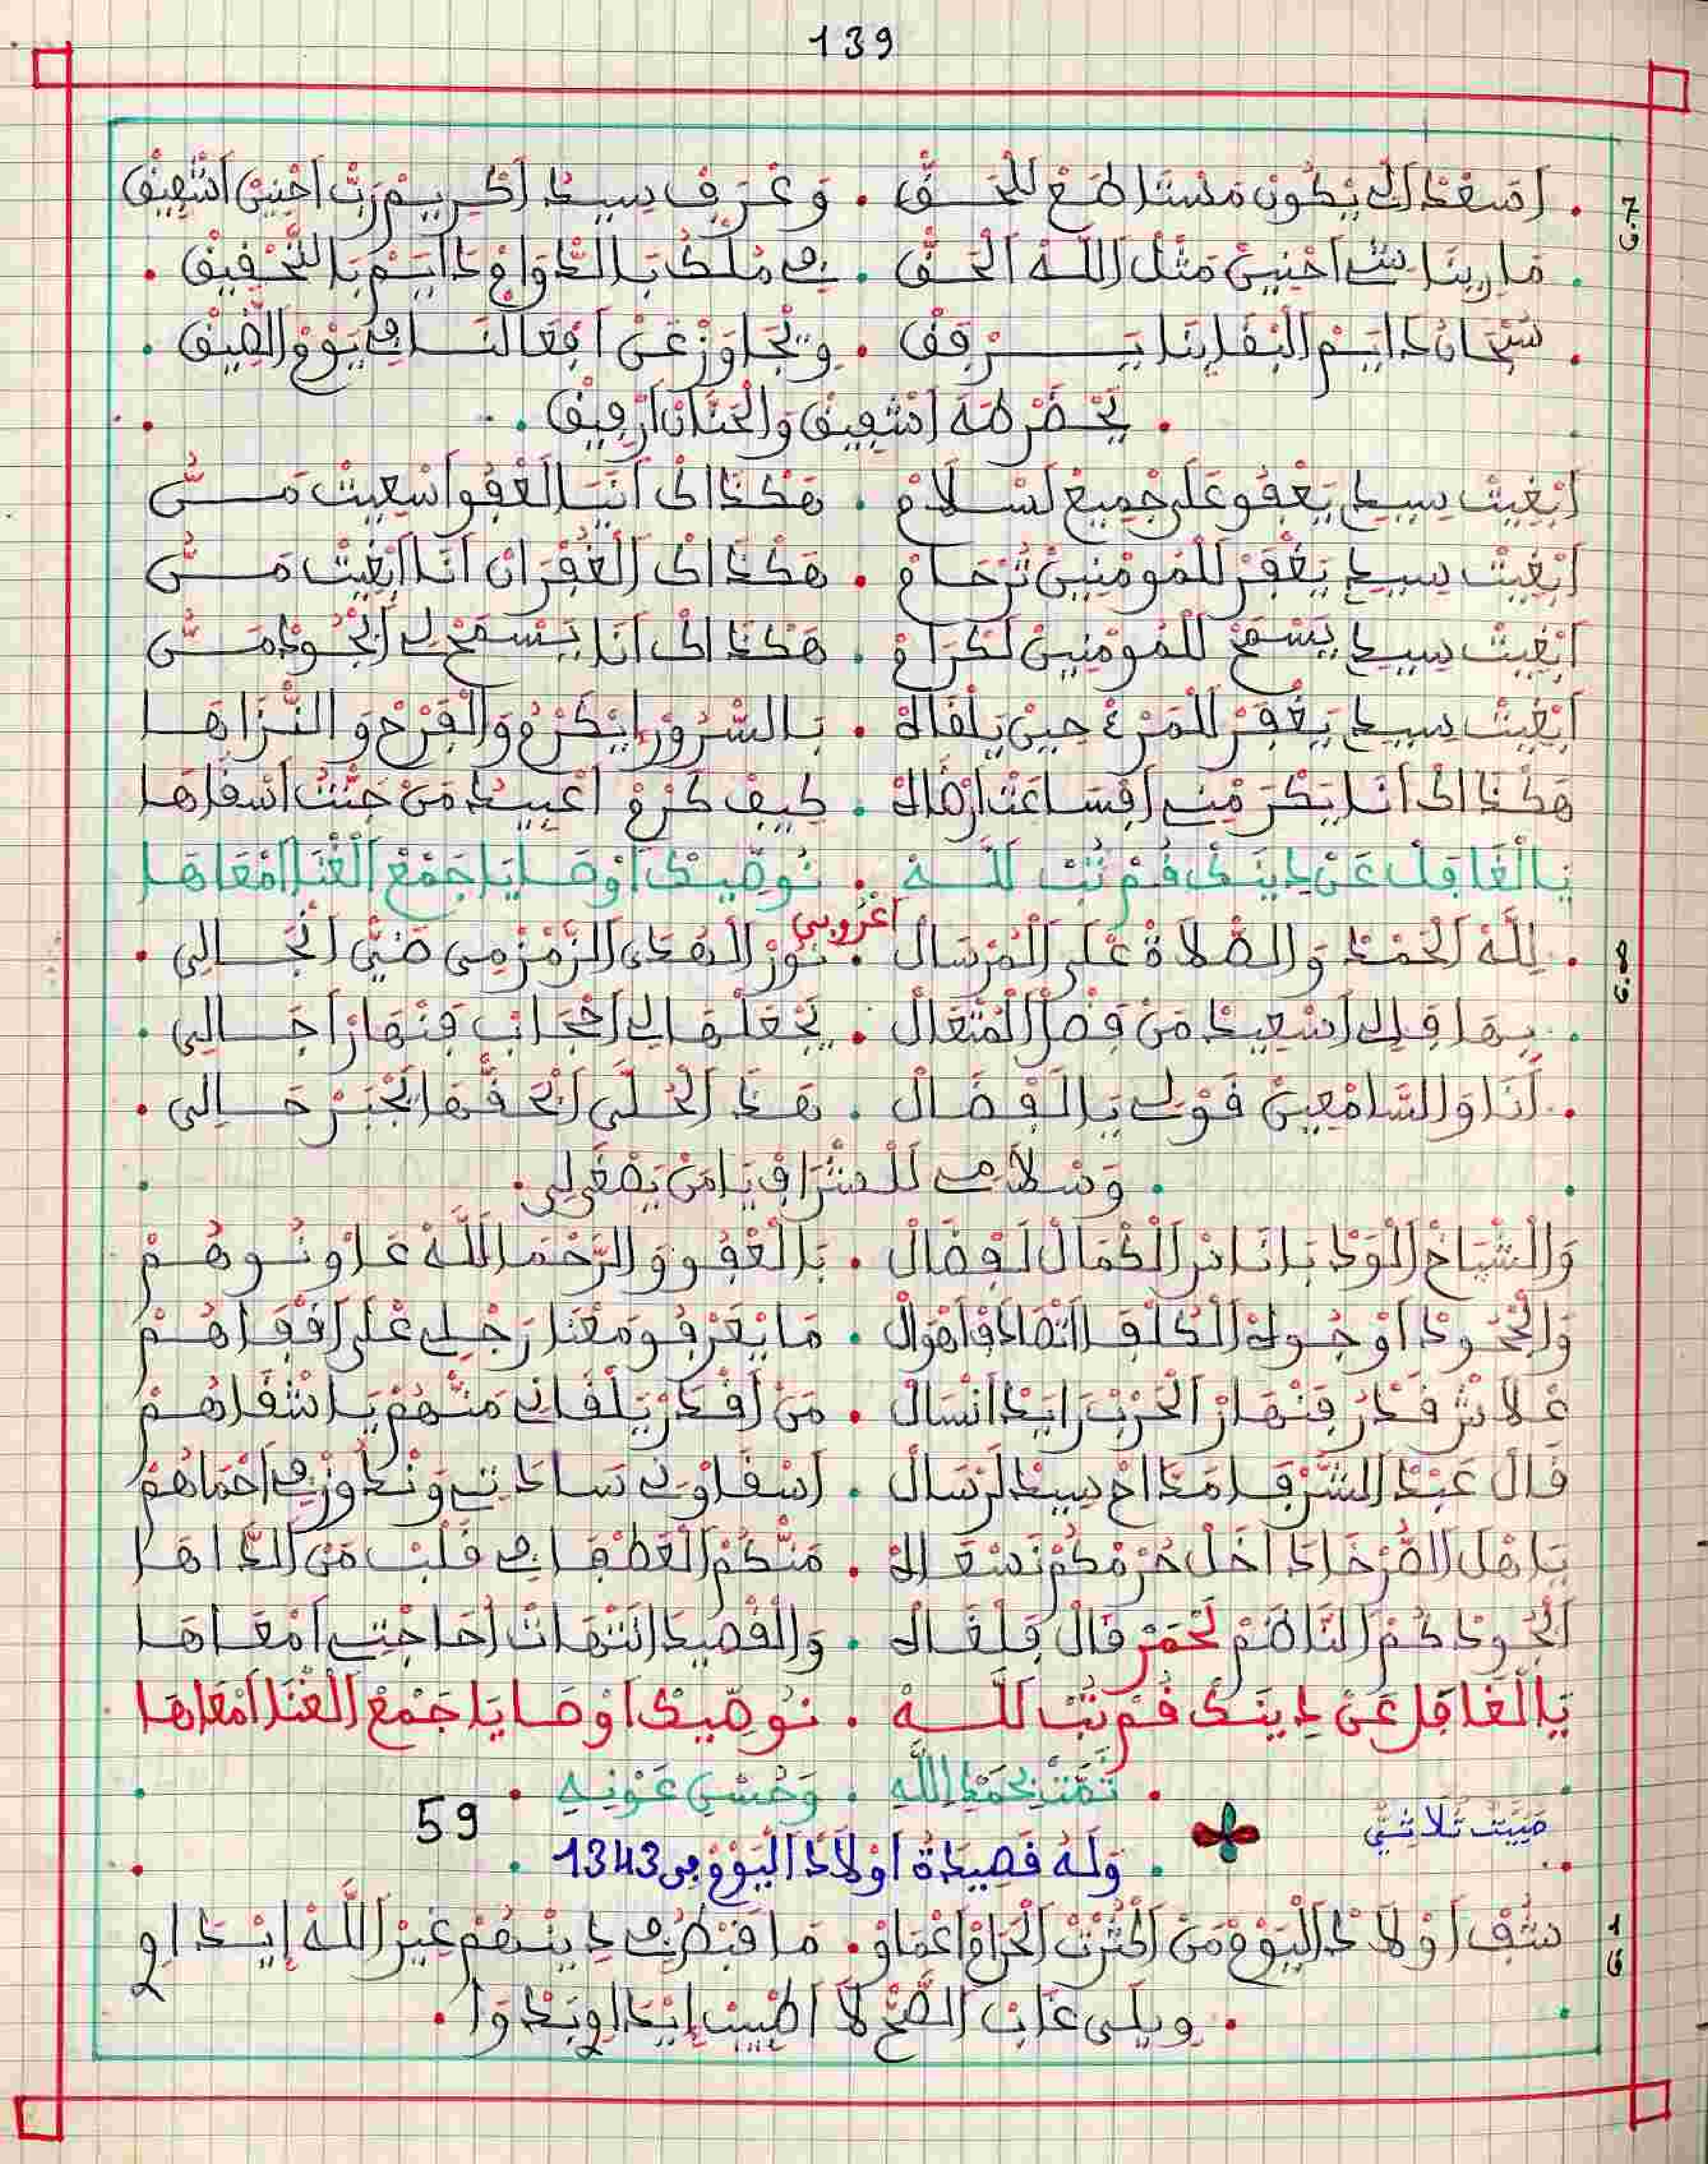 139
ق.7
. اَصَعْدْ اَلِي يْكُونْ مَسْتَاطَعْ لَلْحَـــقّْ . وَعْرَفْ سِيدْ اَكْرِيمْ رَبّْ اَحْنِينْ اَشْفِيقْ
. مَا رِينَا شِي اَحْنِينْ مَثْلْ اَللَّهْ اَلْحَـقّْ . فِي مُلْكُ بَالدّْوَامْ دَايَمْ بَالتَّحْقِيقْ .
. سُبْحَانُ دَايَمْ اَلْبْقَا بِنَا يَـــرْفَقْ . وِتْجَاوَزْ عَنْ اَفْعَالْنَا فِي يَوْمْ الضِّيقْ .
. يَحْضَرْ طَهَ اَشْفِيقْ وَالْحَنَّانْ اَرْفِيقْ .
اَبْغِيتْ سِيدِي يَعْفُو عَلَى جْمِيعْ لَسْلَامْ . هَكْدَاكْ اَنَيَا لَعْفُو اَسْعِيتْ مَــنُّ
اَبْغِيتْ سِيدِي يَغْفَرْ لَلْمُومْنِينْ تَرْحَامْ . هَكْدَاكْ اَلْغُفْرَانْ اَنَا اَبْغِيتْ مَــنُّ
اَبْغِيتْ سِيدِي يَسْمَحْ لَلْمُومْنِينْ لَكْرَامْ . هَكْدَاكْ اَنَا يَسْمَحْ لِي اَبْجُودْ مَــنُّ
اَبْغِيتْ سِيدِي يَغْفَرْ لَلْمَرْءْ حِينْ يَلْقَاهْ . بَالسّْرُورْ اِيْكَرْمُ وَالْفَرْحْ وَالنّْزَاهَــا
هَكْدَاكْ اَنَا يَكْرَمْنِي اَفْسَاعَتْ اَرْضَاهْ . كِيفْ كْرَمْ اَعْبِيدُ مَنْ جَنّْتُ اَسْقَاهَا
يَا الْغَافِلْ عَنْ دِينَكْ قُمْ تُبْ لَلَّــهْ . نُوصِّيكْ اَوْصَايَا جَمْعْ الْغْنَا اَمْعَاهَا
اَعْرُوبِي
ق.8
. لِلَّهْ اَلْحَمْدْ وَالصّْلَاةْ عْلَى الْمُرْسَالْ . نُورْ الْهْدَى الزَّمْزْمِي ضَيّْ اَنْجَــالِي .
. بِهَا قَلِي اَسْعِيدْ مَنْ فَضْلْ الْمَتْعَالْ . يَجْعَلْهَا لِي اَحْجَابْ فَنْهَارْ اَجَـــالِي .
. اَنَا وَالسَّامْعِينْ قَوْلِي يَا الْفْضَّالْ . هَدْ اَلْحُلَّى اَبْحَقّْهَا تَجْبَرْ حَـــالِي .
. وَسْلَامِي لَلشْرَافْ يَا مَنْ يَصْغَى لِي .
وَالشْيَاخْ اَلْوَدْبَا نَاسْ اَلْكْمَالْ لَفْضَالْ . بَالْعْفُو وَالرَّحْمَا اَللَّهْ عَاوْنُــوهُــمْ
وَالْجْحُودْ اَوْجُوهْ اَلْكَلْفَا اَتْضَادْقْ اَهْوَالْ . مَا يْعَرْفُو مَعْنَا رَجْلِي عْلَى اَقْفَاهُــمْ
عْلَاشْ قَدْرُ فَنْهَارْ اَلْحَرْبْ رَايَدْ اَنْسَالْ . مَنْ اَقْدَرْ يَلْقَانِي مَنْهُمْ يَا شْقَاهُــمْ
قَالْ عَبْدْ الشُّرْفَا مَدَّاحْ سِيدْ لَرْسَالْ . اَسْقَاوْنِي سَادَتِي وَنْدُوزْ فِي اَحْمَاهُمْ
يَا هْلْ الصُّرْخَا دَاخَلْ حُرْمْكُمْ نَسْعَاهْ . مَنْكُمْ الْعَطْفَا فِي قَلْبْ مَنْ الدَّاهَـا
اَبْجُودْكُمْ النَّاضَمْ لَحْمَرْ قَالْ فَلْغَاهْ . وَالْقْصِيدَا اَنْتْهَاتْ اَحَاجْتِي اَمْعَاهَـا
يَا الْغَافِلْ عَنْ دِينَكْ قُمْ تُبْ لَلَّــهْ . نُوصِّيكْ اَوْصَايَا جَمْعْ اَلْغْنَا اَمْعَاهَا
. تَمَّتْ بِحَمْدِ اللَّهِ . وَحُسْنِ عَوْنِهِ .
مَبِيَّتْ ثُلَاثِي
59
. وَلَهُ قَصِيدَةُ اَوْلَادْ اَلْيَوْمْ فِي 1343 .
ق 1
شُفْ اَوْلَادْ اَلْيَوْمْ مَنْ اَكْثَرْتْ اَلْحَرَامْ اَعْمَاوْ . مَا فَبْطُهُمْ دِينْهُمْ غِيرْ اَللَّهْ اِيْدَاوِي
. وِيلَى عَابْ الصَّحّْ لَا اَطْبِيبْ اِيْدَاوِي بَدْوَا .